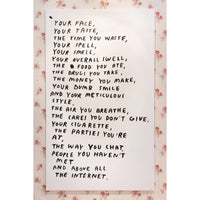 YOUR FACE,
YOUR TASTE,
THE TIME YOU WASTE,
YOUR SPELL,
YOUR SMELL,
YOUR OVERALL SWELL,
THE FOOD YOU ATE,
THE DRUGS YOU TAKE,
THE MONEY YOU MAKE,
YOUR DUMB SMILE
AND YOUR METICULOUS
STYLE.
THE AIR YOU BREATHE,
THE CARES YOU DON'T GIVE.
YOUR CIGARETTE,
THE PARTIES YOU'RE
AT,
THE WAY YOU CHAT,
PEOPLE YOU HAVEN'T
MET
AND ABOVE ALL
THE INTERNET.